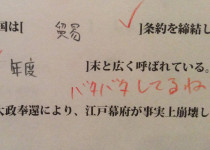 国は[ 貿易 ]条約を締結し
年度 ]末と広く呼ばれている。
バタバタしてるね
大政奉還により、江戸幕府が事実上崩壊し